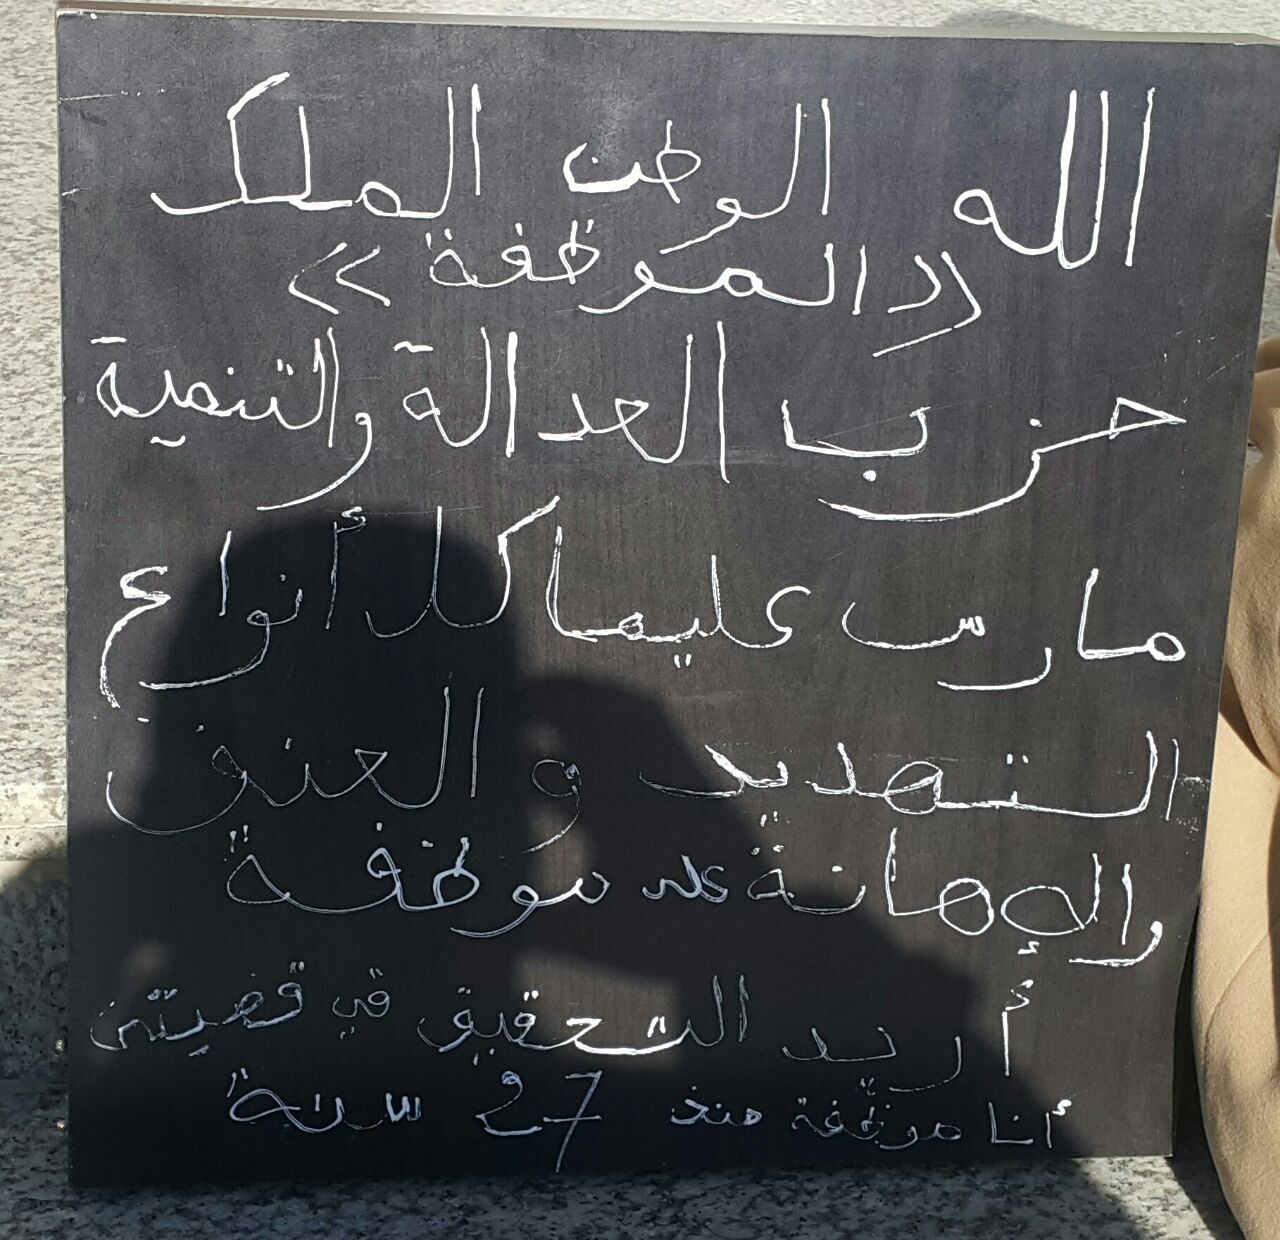 الله الوطن الملك
((الموظفة))
حزب العدالة والتنمية
مارس عليها كل أنواع
التهديد و العنف
والإهانة على موظفة
أريد التحقيق في قضيتي
أنا موظفة منذ 27 سنة